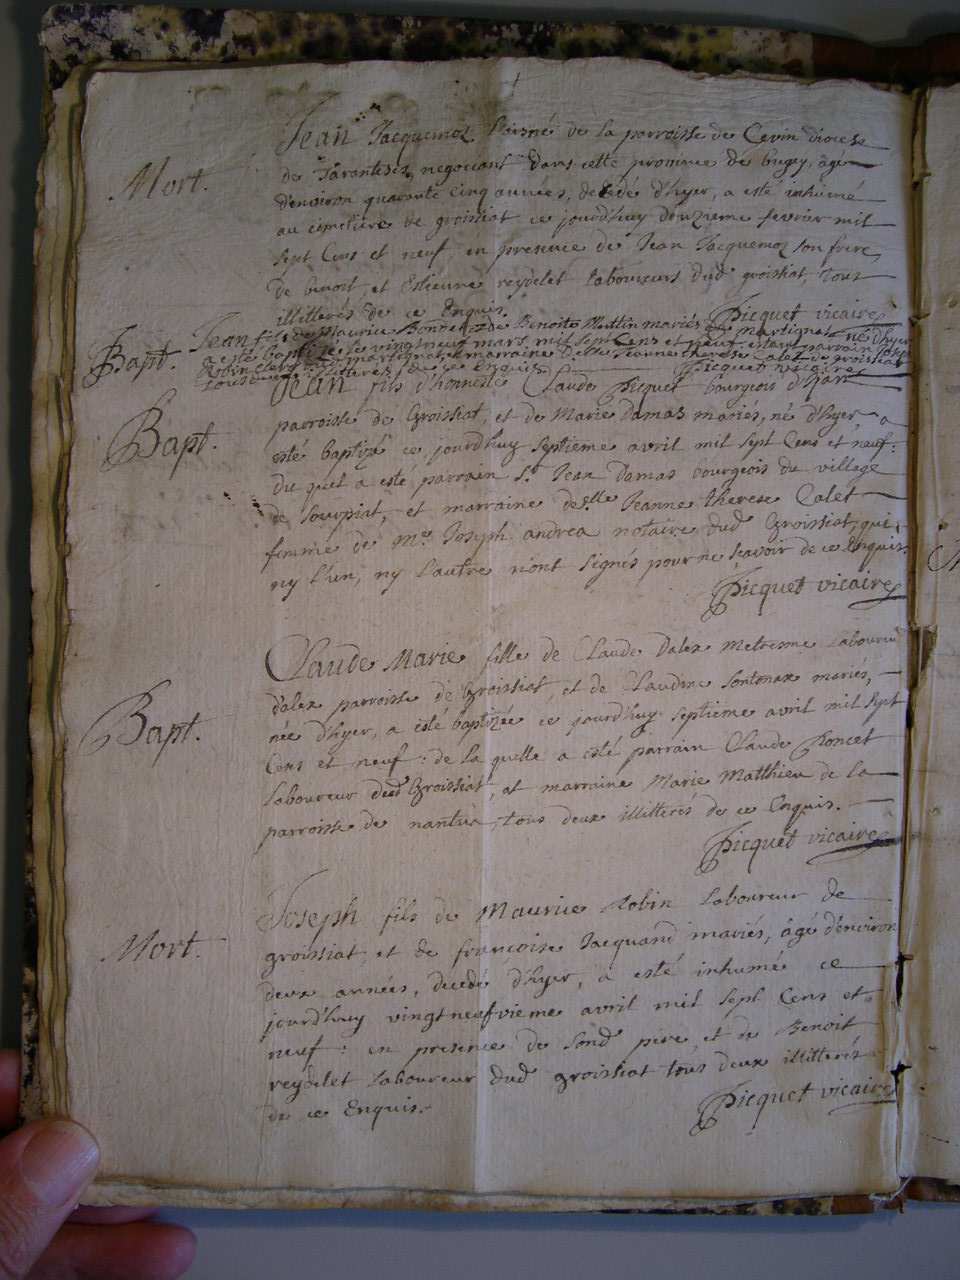 Mort.
Jean Jacquemoz l'aisné de la parroisse de Cevin diocese
de Tarantesse, negociant dans cette province de bugey, âgé
d'environ quarante cinq années, decedé d'hyer, a esté inhumé
au cimetiere de groissiat ce jourd'huy donzieme fevrier mil
sept Cens et neuf, en presence de Jean Jacquemoz son frere,
de benoit, et Estienne reydelet laboureurs dud. groissiat, tous
illitterés de ce Enquis.
Picquet vicaire
Bapt.
Jean fils de Maurice de Benoite Muttin mariés de martignat né d'hyer
a esté baptizé le vingtneuf mars mil sept Cens et neuf estant parrain
Robin clerc martignat, et marraine Delle Jeanne therese Calet de groissiat
tous deux illitterés de ce enquis Picquet vicaire
Bapt.
Jean fils d'honneste Claude Picquet bourgeois
parroisse de Groissiat, et de Marie Damas mariés, né d'hyer a
esté baptizé ce jourd'huy septieme avril mil sept Cens et neuf:
du quel a esté parrain Sr. Jean Damas bourgeois du village
de Sourpiat, et marraine de.lle Jeanne therese Calet
femme de Me. Joseph andrea notaire dud. Groissiat, qui
ny l'un, ny l'autre n'ont signés pour ne scavoir de ce enquis.
Picquet vicaire
Bapt.
Claude Marie fille de Claude Dalex laboureur
d'alex parroisse de Groissiat, et de Claudine Sontonax mariés,
née d'hyer, a esté baptizée ce jourd'huy septieme avril mil sept
Cens et neuf: de la quelle a esté parrain Claude Poncet
laboureur dud Groissiat, et marraine Marie Matthieu de la
parroisse de nantua, tous deux illitterés de ce Enquis.
Picquet vicaire
Mort.
Joseph fils de Maurice Robin laboureur de
groissiat, et de françoise Jacquand mariés, âgé d'environ
deux années, decedé d'hyer, a esté inhumé ce
jourd'huy vingtneufvieme avril mil sept Cens et
neuf: en presence de sond. pere, et de Benoit
reydelet laboureur dud. groissiat tous deux illitterés
de ce Enquis.
Picquet vicaire